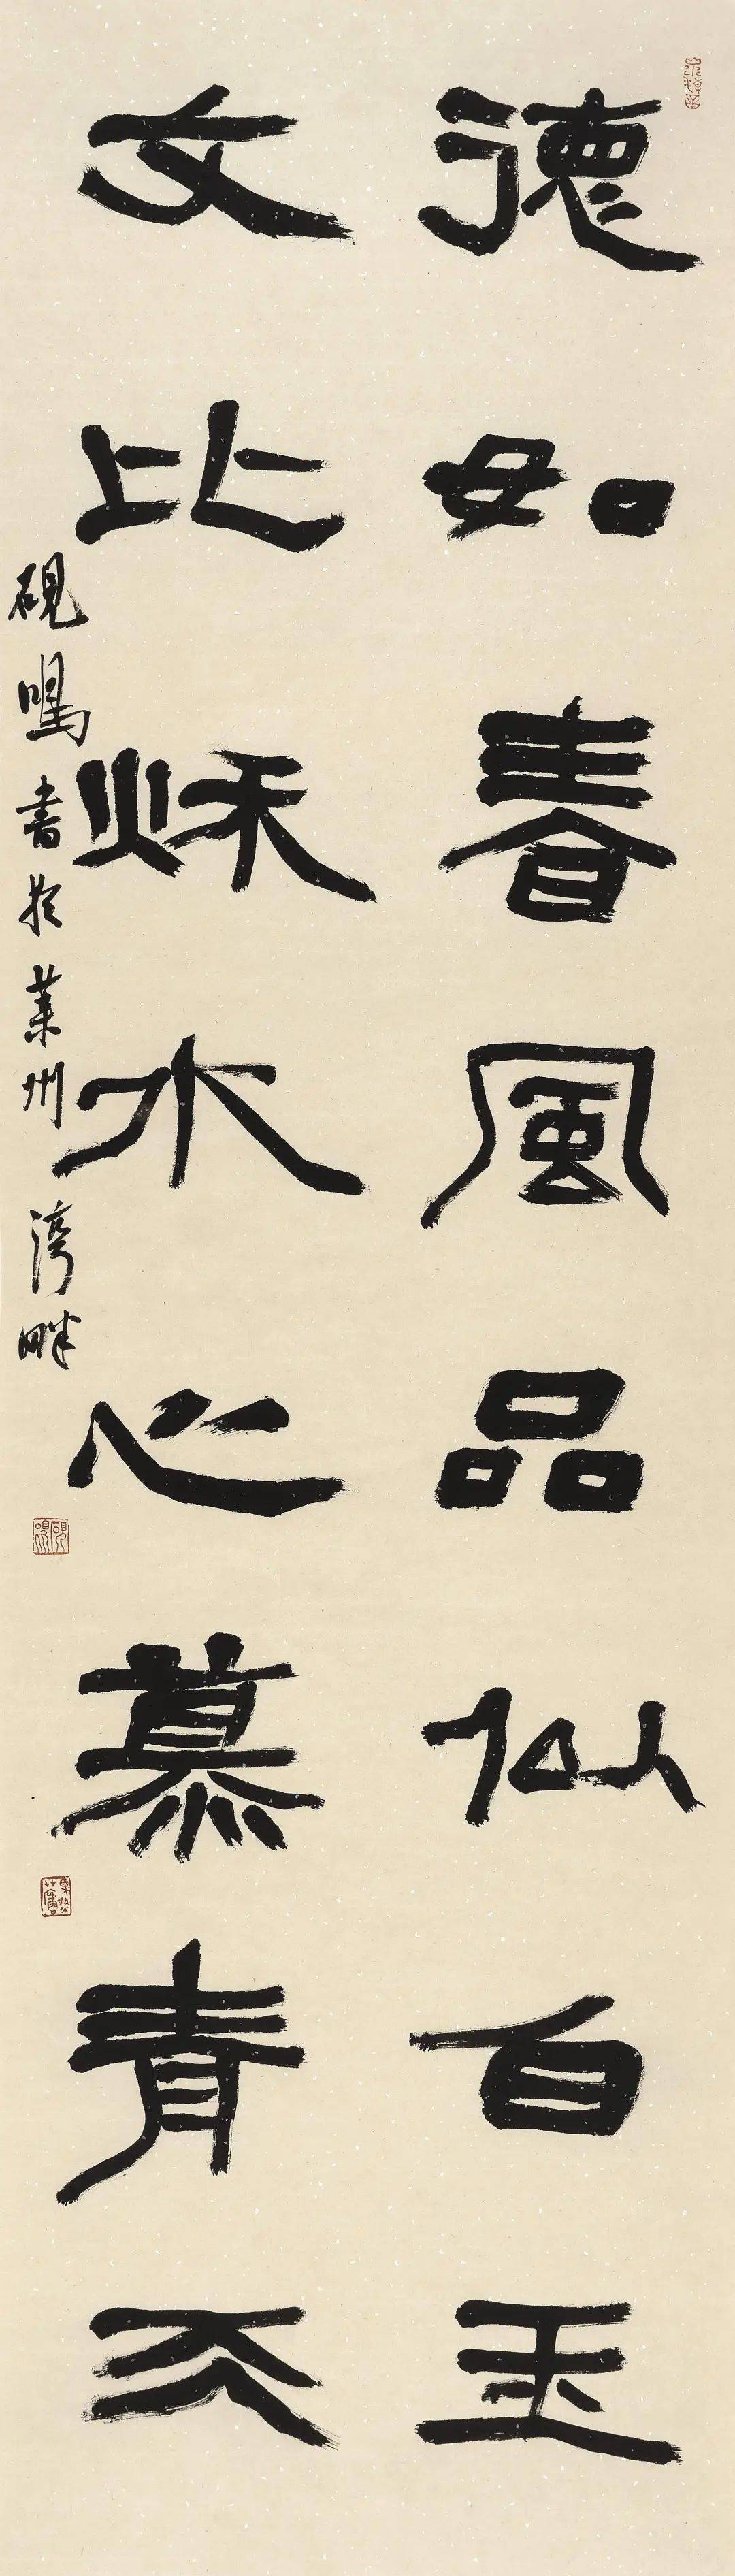 德如春風品似白玉
文比秋水心慕青天
硯鳴書於萊州湾畔
硯鳴